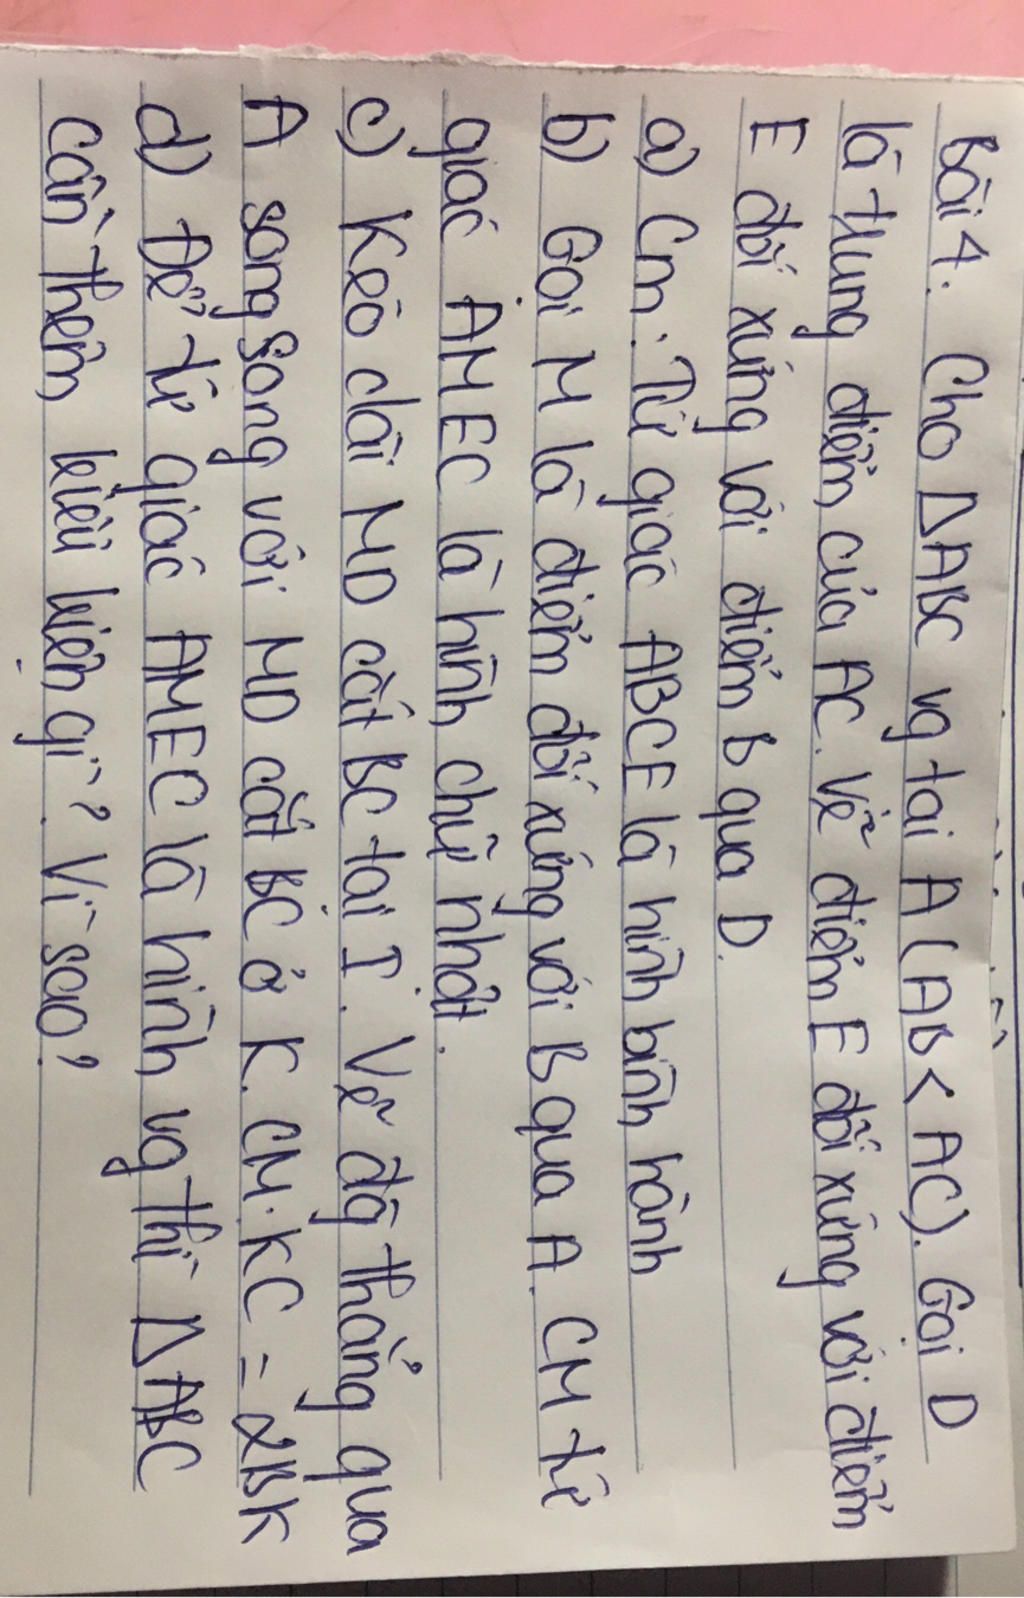 Bài 4. Cho ΔABC vg tại A (AB < AC). Gọi D
là trung điểm của AC. Vẽ điểm E đối xứng với điểm
E đối xứng với điểm B qua D.
a) Cm: Tứ giác ABCE là hình bình hành
b) Gọi M là điểm đối xứng với B qua A. CM tứ
giác AMEC là hình chữ nhật.
c) Kéo dài MD cắt BC tại I. Vẽ đg thẳng qua
A song song với MD cắt BC ở K. CM: KC = 2BK
d) Để tứ giác AMEC là hình vg thì ΔABC
cần thêm kiều kiện gì? Vì sao?